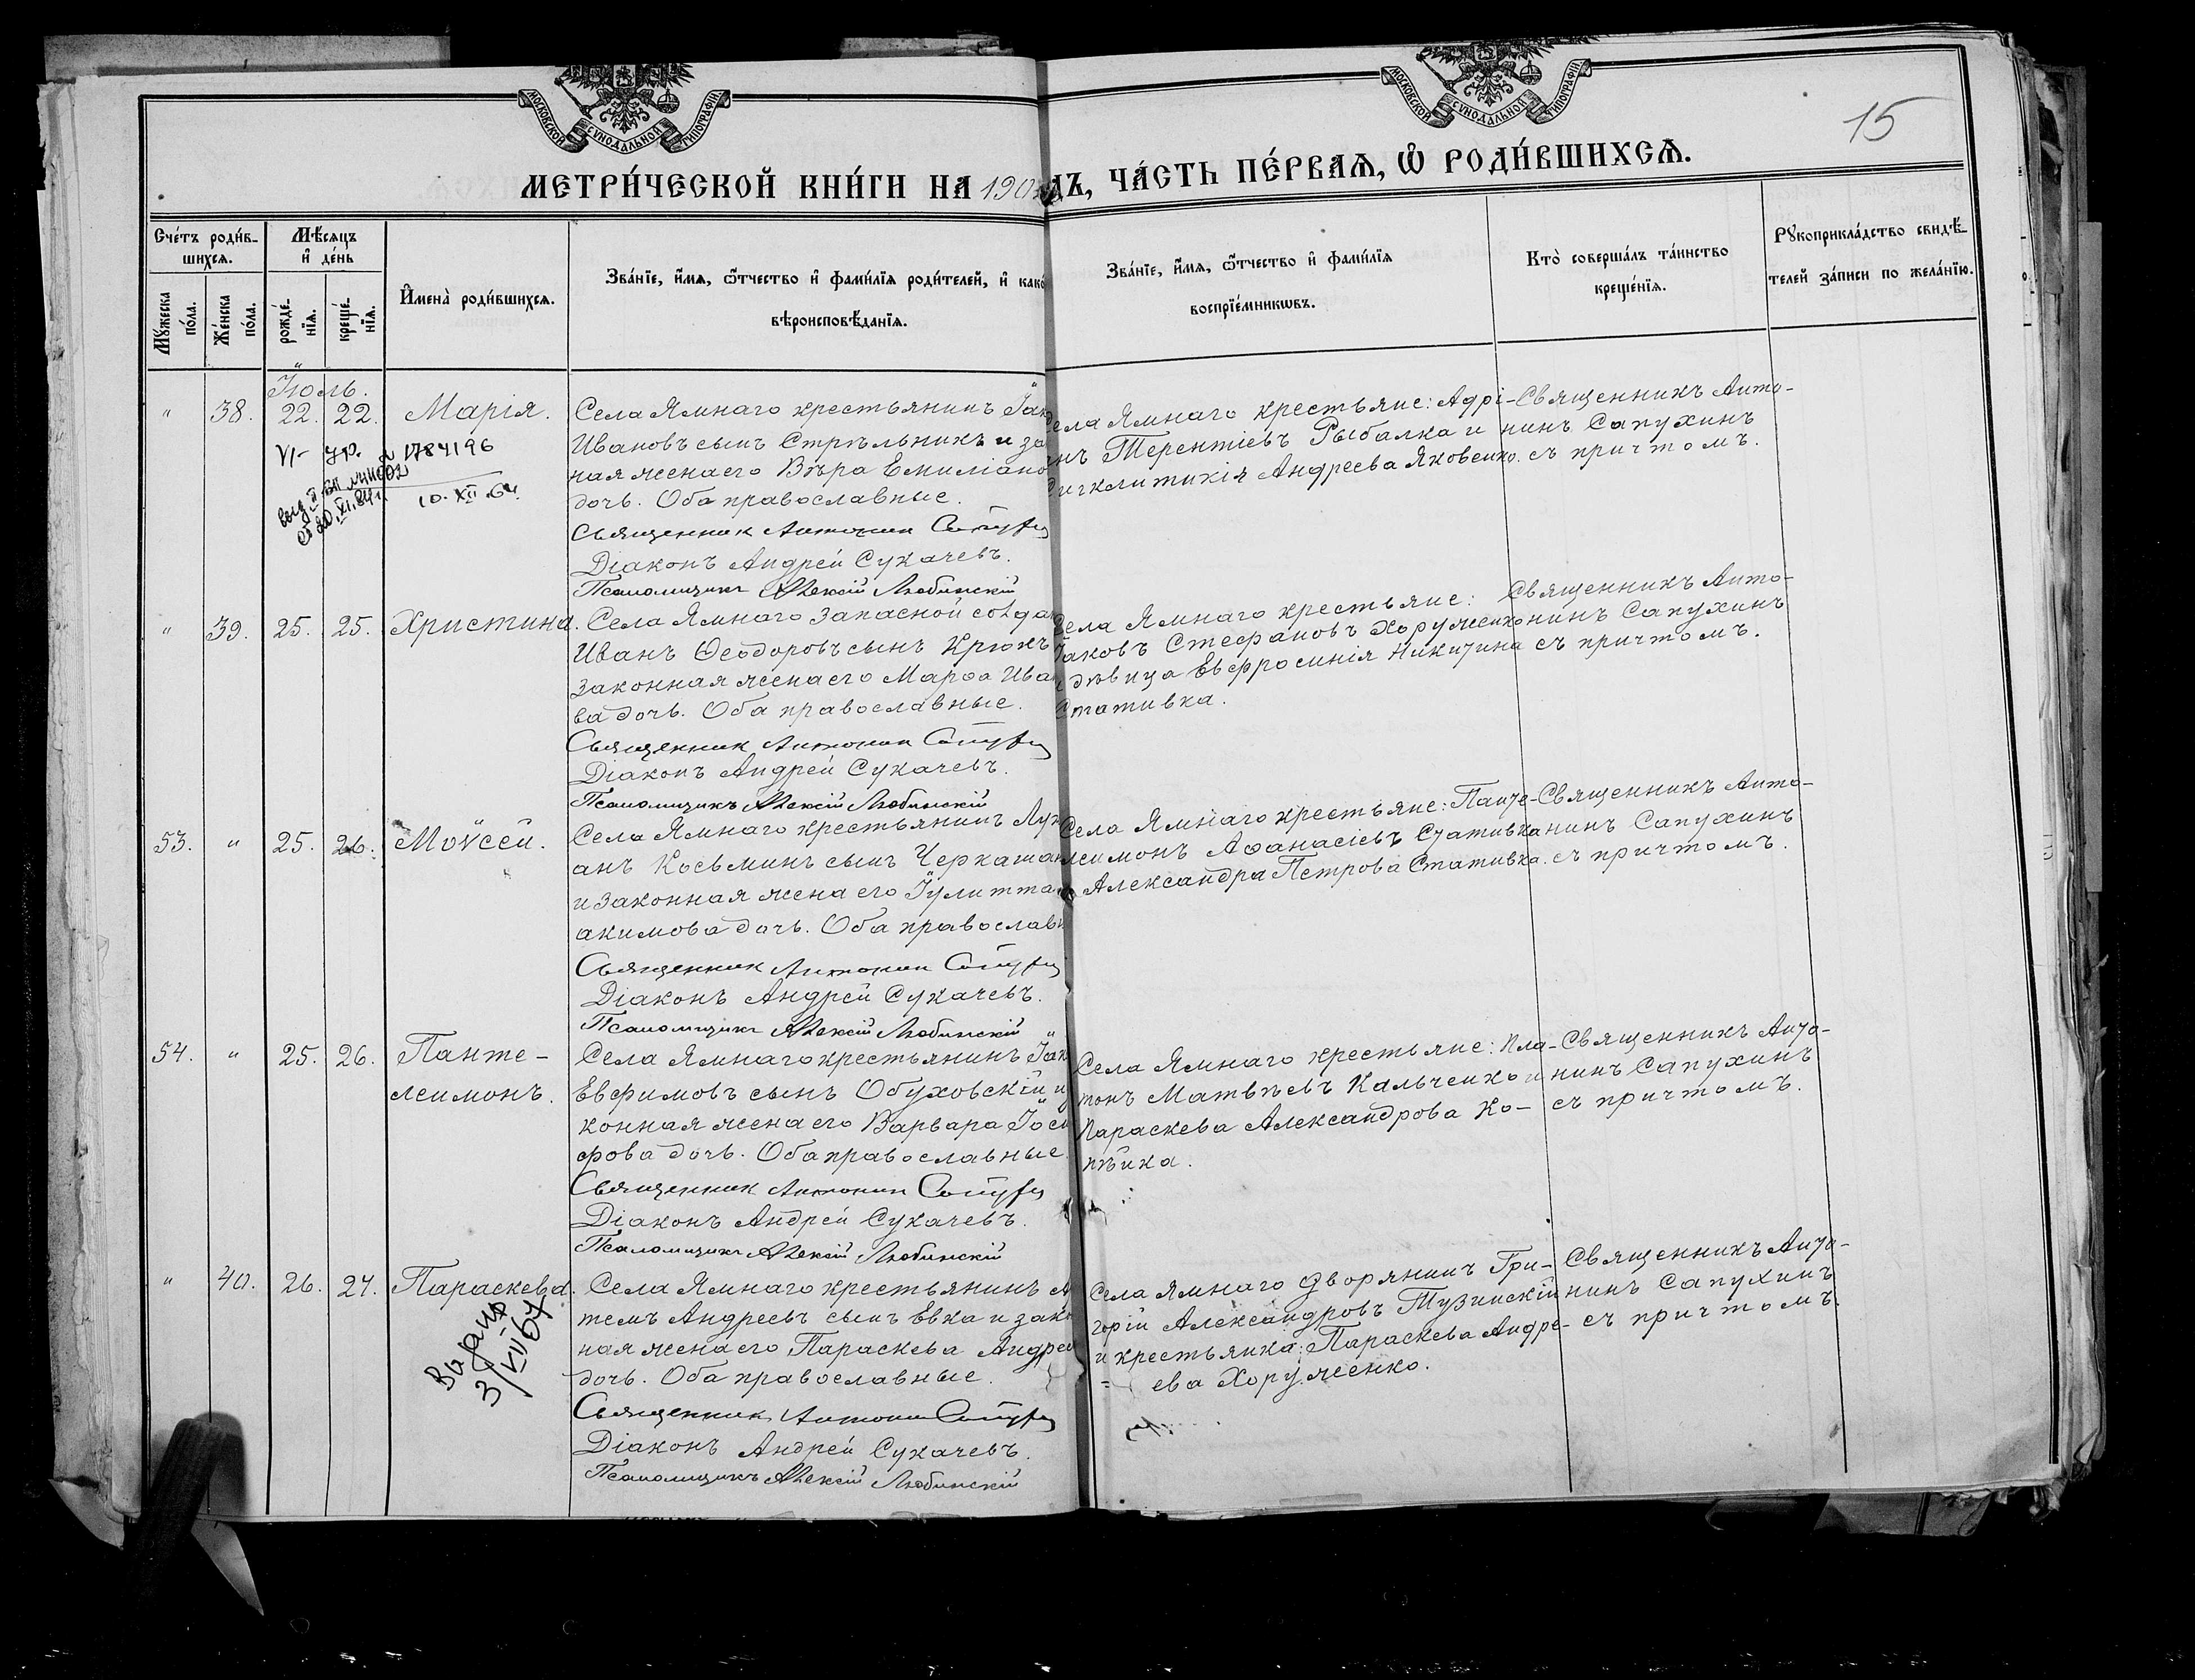 МОСКОВСКОЙ СѴНОДАЛЬНОЙ ТИПОГРАФІИ
МОСКОВСКОЙ СѴНОДАЛЬНОЙ ТИПОГРАФІИ
15
МЕТРИ́ЧЕСКОЙ КНИ́ГИ НА 190 ДЪ, ЧА́СТЬ ПЕ́РВАѦ, Ѡ҆ РОДИ́ВШИХСѦ.
Сче́тъ роди́в-
шихсѧ.
Мѣ́сѧцъ
и҆ де́нь
Мꙋ́жеска
по́ла.
Же́нска
по́ла.
рожде́-
нїѧ.
креще́-
нїѧ.
И҆мена̀ роди́вшихсѧ.
Зва́нїе, и҆́мѧ, ѻ҆́тчество и҆ фами́лїѧ роди́телей, и҆ како́
вѣроисповѣ́данїѧ.
Зва́нїе, и҆́мѧ, ѻ҆́тчество и҆ фами́лїѧ
воспрїе́мникѡвъ.
Кто̀ соверша́лъ та́инство
креще́нїѧ.
Рꙋкоприкла́дство свидѣ́-
телей за́писи по жела́нїю.
Іюль.
" 38. 22. 22. Марія.
Села Ямнаго крестьянинъ Іак
Ивановъ сынъ Стрѣльникъ и за
ная жена его Вѣра Емиліано
дочь. Оба православные.
Священник Антонин Сапух
Діаконъ Андрей Сукачевъ.
Псаломщикъ Алексій Любинскій
ела Ямнаго крестьяне: Адрі-
анъ Терентіевъ Рыбалка и
Сигклитикія Андреева Яковенко.
Священникъ Анто-
нинъ Сапухинъ
съ причтомъ.
1784196
10.XII.64
" 39. 25. 25. Христина.
Села Ямнаго запасной солда
Иванъ Ѳеодоровъ сынъ Крюкъ
законная жена его Марѳа Ива
ва дочь. Оба православные.
Священник Антонин Сапух
Діаконъ Андрей Сукачевъ.
Псаломщикъ Алексій Любинскій
Села Ямнаго крестьяне:
Іаковъ Стефановъ Хоруженко
и дѣвица Евфросинія Никитина
Стативка.
Священникъ Анто-
нинъ Сапухинъ
съ причтомъ.
53. " 25. 26. Моѵсей.
Села Ямнаго крестьянинъ Лук
анъ Косьминъ сынъ Черкаша
и законная жена его Іулитта
акимова дочь. Оба православн
Священник Антонин Сапух
Діаконъ Андрей Сукачевъ.
Псаломщикъ Алексій Любинскій
Села Ямнаго крестьяне: Панте-
леимонъ Аѳанасіевъ Стативка
и Александра Петрова Стативка.
Священникъ Анто-
нинъ Сапухинъ
съ причтомъ.
54. " 25. 26. Панте-
леимонъ.
Села Ямнаго крестьянинъ Іак
Евфимовъ сынъ Обуховскій и
конная жена его Варвара Іоси
фова дочь. Оба православные
Священник Антонин Сапух
Діаконъ Андрей Сукачевъ.
Псаломщикъ Алексій Любинскій
Села Ямнаго крестьяне: Пла-
тонъ Матвѣевъ Кальченко и
Параскева Александрова Ко-
пѣйка.
Священникъ Анто-
нинъ Сапухинъ
съ причтомъ.
" 40. 26. 27. Параскева.
Села Ямнаго крестьянинъ А
темъ Андреевъ сынъ Евка и зако
ная жена его Параскева Андрее
дочь. Оба православные.
Священник Антонин Сапух
Діаконъ Андрей Сукачевъ.
Псаломщикъ Алексій Любинскій
Села Ямнаго дворянинъ Гри-
горій Александровъ Тузинскій
и крестьянка: Параскева Андре-
ева Хоруженко.
Священникъ Анто-
нинъ Сапухинъ
съ причтомъ.
Видано
3/VII 67